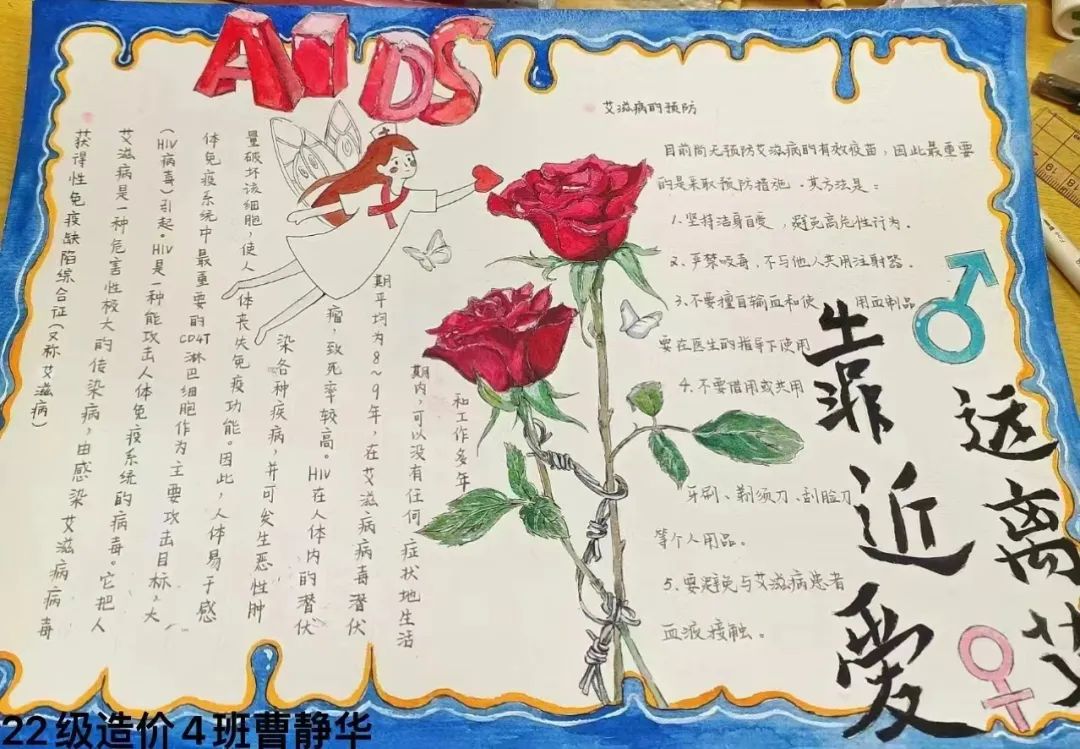 AIDS
获得性免疫缺陷综合征(又称艾滋病)
艾滋病是一种危害性极大的传染病,由感染艾滋病病毒
(HIV病毒)引起。HIV是一种能攻击人体免疫系统的病毒。它把人
体免疫系统中最重要的CD4T淋巴细胞作为主要攻击目标,大
量破坏该细胞,使人体丧失免疫功能。因此,人体易于感
染各种疾病,并可发生恶性肿
瘤,致死率较高。HIV在人体内的潜伏
期平均为8~9年,在艾滋病病毒潜伏
期内,可以没有任何症状地生活
和工作多年
艾滋病的预防
目前尚无预防艾滋病的有效疫苗,因此最重要
的是采取预防措施.其方法是:
1.坚持洁身自爱,避免高危性行为.
2.严禁吸毒,不与他人共用注射器.
3.不要擅自输血和使 用血制品
要在医生的指导下使用
4.不要借用或共用
牙刷、剃须刀、刮脸刀
等个人用品。
5.要避免与艾滋病患者
血液接触。
靠近爱
远离艾
22级造价4班曹静华